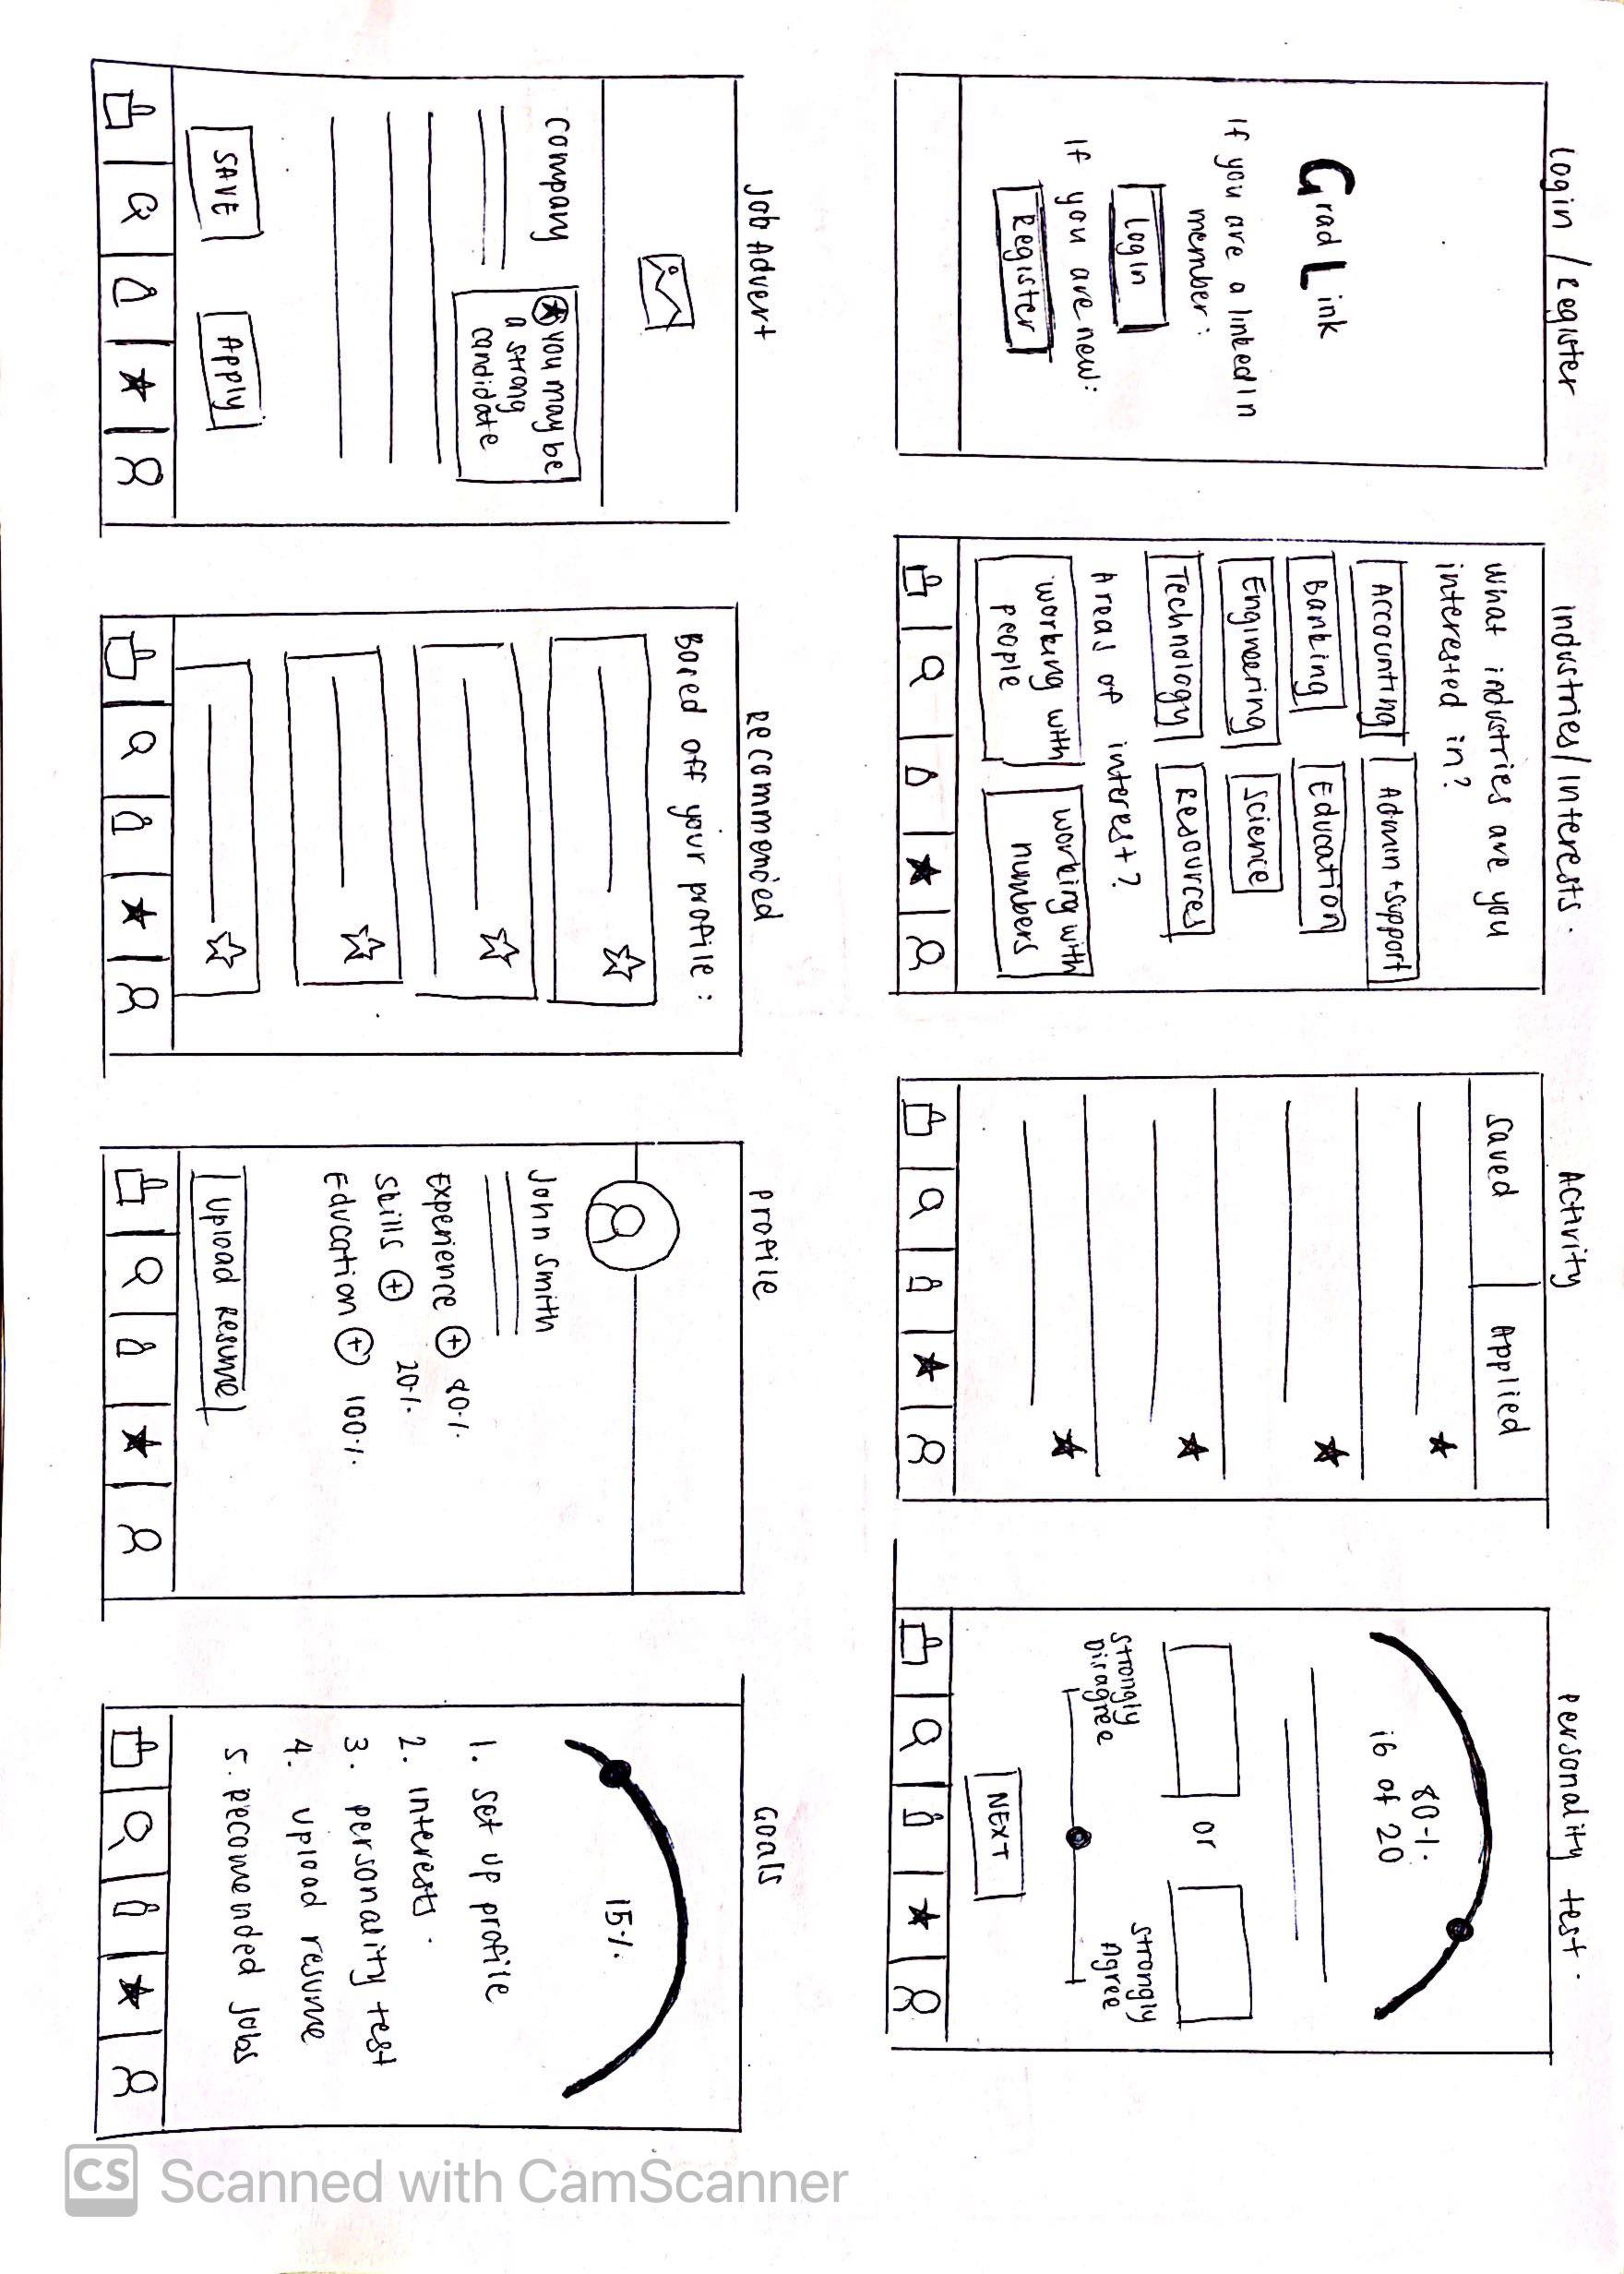 Login / Register
Grad Link
If you are a linked In
member:
Login
If you are new:
Register
Industries/Interests.
What industries are you
interested in?
Accounting
Admin + Support
Banking
Education
Engineering
Science
Technology
Resources
Areas of interest?
working with
people
working with
numbers
Activity
Saved
Applied
Personality test.
80%
16 of 20
or
Strongly
Disagree
Strongly
Agree
NEXT
Job Advert
company
you may be
a strong
candidate
SAVE
Apply
Recommended
Bared off your profile:
Profile
John Smith
Experience + 80%
Skills + 20%
Education + 100%
Upload Resume
Goals
15%
1. Set up profile
2. interests.
3. personality test
4. upload resume
5. Recomended Jobs
CS Scanned with CamScanner